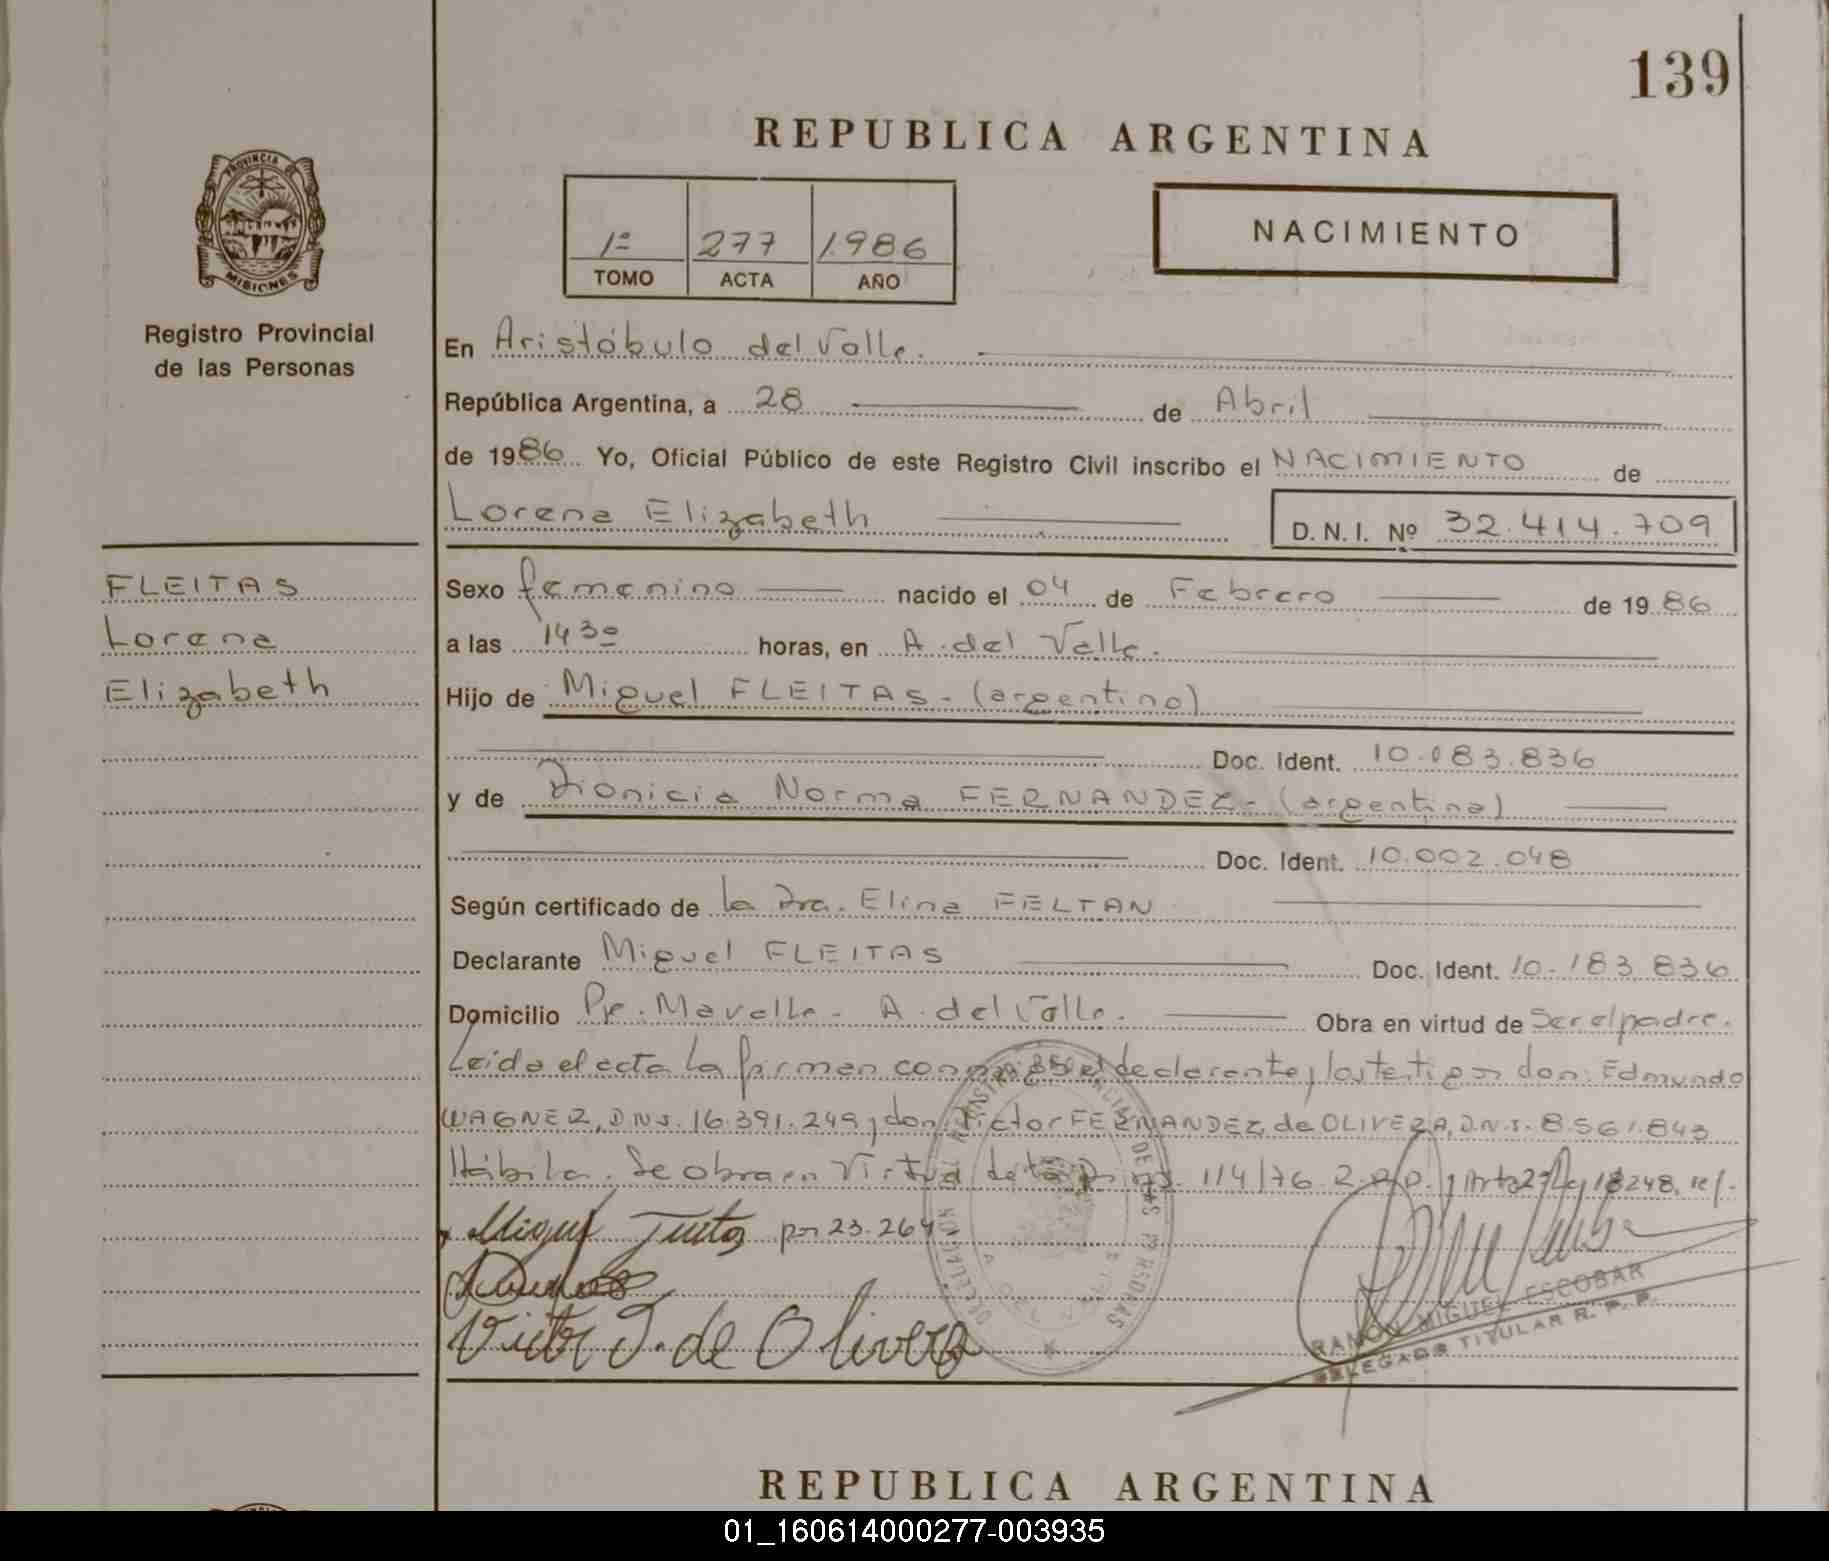 139
REPUBLICA ARGENTINA
PROVINCIA DE
MISIONES
Registro Provincial
de las Personas
1º 277 1.986
TOMO ACTA AÑO
NACIMIENTO
En Aristóbulo del Valle.
República Argentina, a 28 de Abril
de 1986. Yo, Oficial Público de este Registro Civil inscribo el NACIMIENTO de
Lorena Elizabeth D. N. I. Nº 32.414.709
FLEITAS
Lorena
Elizabeth
Sexo femenino nacido el 04 de Febrero de 1986
a las 14 30 horas, en A. del Valle.
Hijo de Miguel FLEITAS - (argentino)
Doc. Ident. 10.183.836
y de Dionicia Norma FERNANDEZ - (argentina)
Doc. Ident. 10.002.048
Según certificado de la Dra. Elina FELTAN
Declarante Miguel FLEITAS Doc. Ident. 10.183.836
Domicilio Pje. Mavalle - A. del Valle. Obra en virtud de Ser el padre.
Leida el acta la firman conmigo el declarante y los testigos don: Edmundo
WAGNER, DNI. 16.391.249 y don Victor FERNANDEZ de OLIVERA, D.N.I. 8.561.843
Hábiles. Se obra en Virtud de 114/76 R.P.P. y Art. 2 Ley 18248, ref.
por 23.264
Victor F. de Olivera
RAMON MIGUEL ESCOBAR
DELEGADO TITULAR R. P. P.
REPUBLICA ARGENTINA
01_160614000277-003935